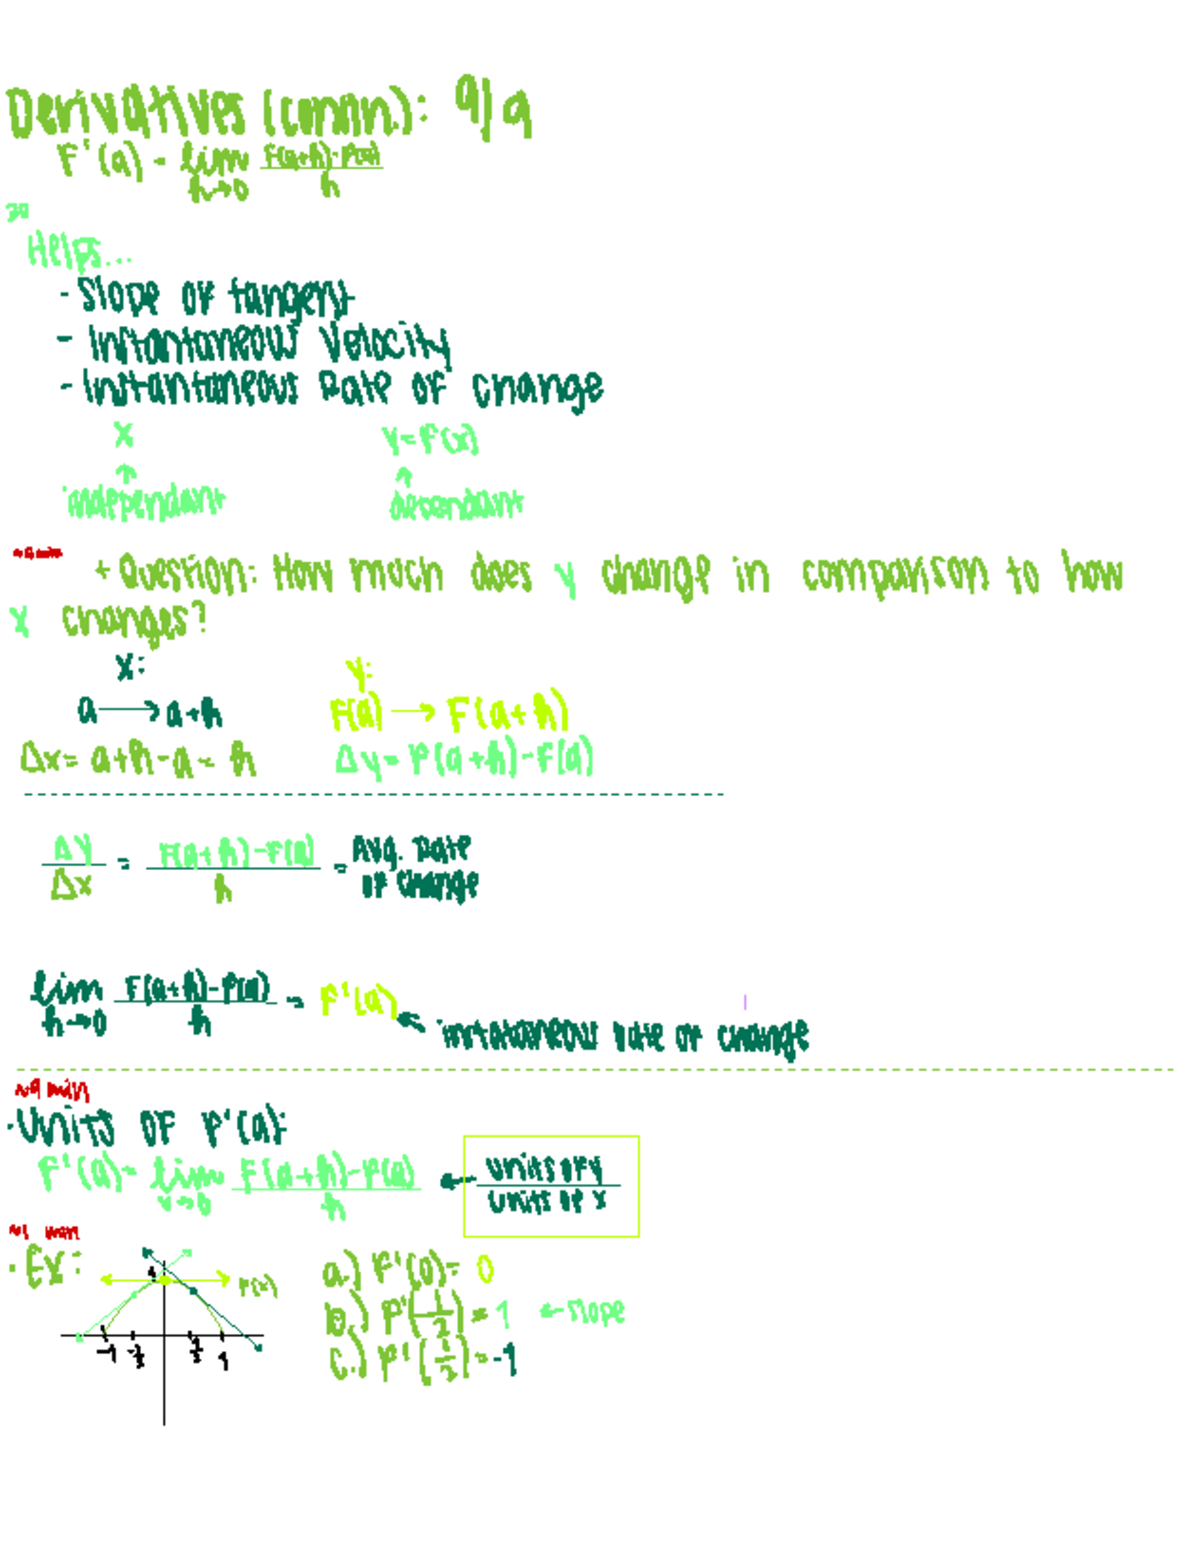 Derivatives (contin.): 9/9
F'(a) = lim h→0 F(a+h)-F(a) / h
Helps...
- Slope of tangent
- Instantaneous Velocity
- Instantaneous Rate of change
x y=F(x)
↑ ↑
independant dependant
+ Question: How much does y change in comparison to how
x changes?
x: y:
a → a+h F(a) → F(a+h)
Δx = a+h-a = h Δy = F(a+h)-F(a)
Δy / Δx = F(a+h)-F(a) / h = Avg. Rate of change
lim h→0 F(a+h)-F(a) / h = F'(a) ← instataneous rate of change
~9 min
·Units OF F'(a):
F'(a) = lim F(a+h)-F(a) / h ← units of y / units of x
·Ex: F(x)
1
-1 -1/2 1/2 1
a.) F'(0) = 0
b.) F'(1/2) = 1 ← slope
c.) F'(1/2) = -1